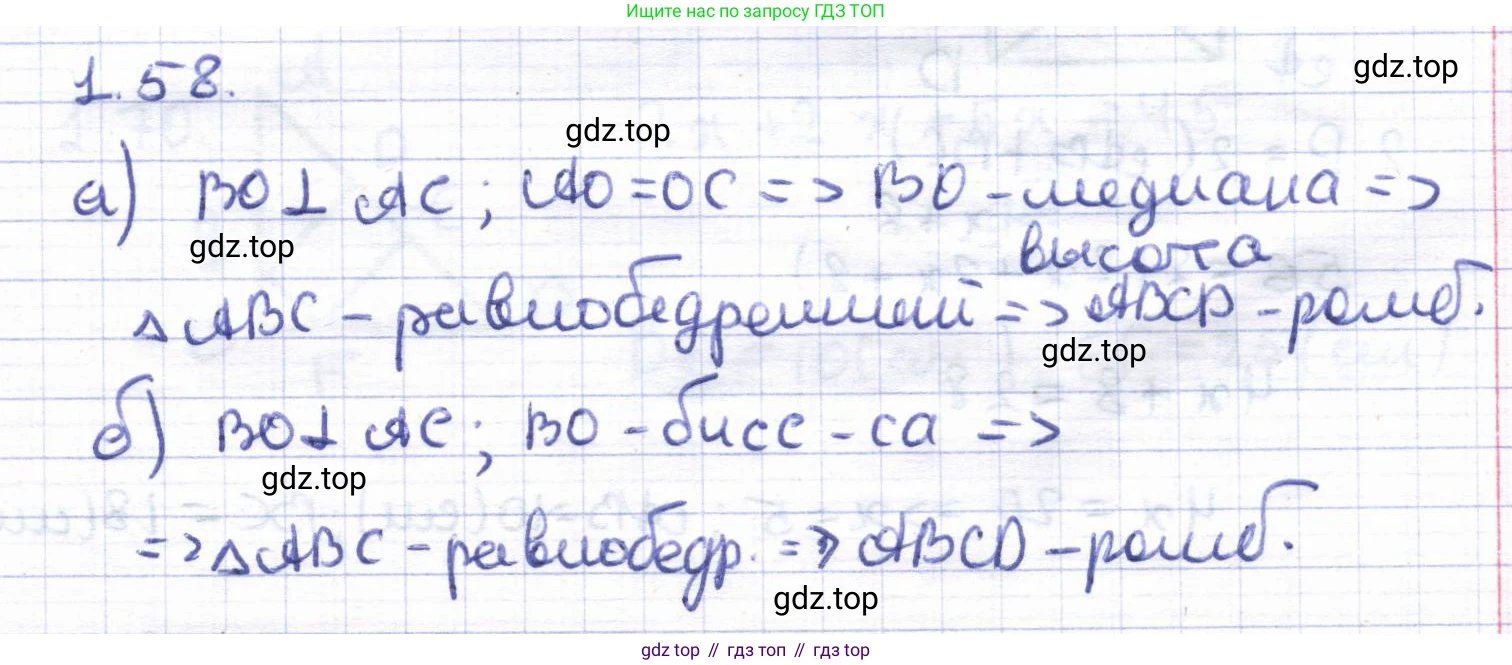 Ищите нас по запросу ГДЗ ТОП
1.58.
gdz.top
gdz.top
а) BO⊥AC; AO=OC => BO - медиана =>
gdz.top
высота
△ABC - равнобедренный => ABCD - ромб.
gdz.top
б) BO⊥AC; BO - бисс-са =>
gdz.top
=> △ABC - равнобедр. => ABCD - ромб.
gdz.top
gdz top // гдз топ // gdz top